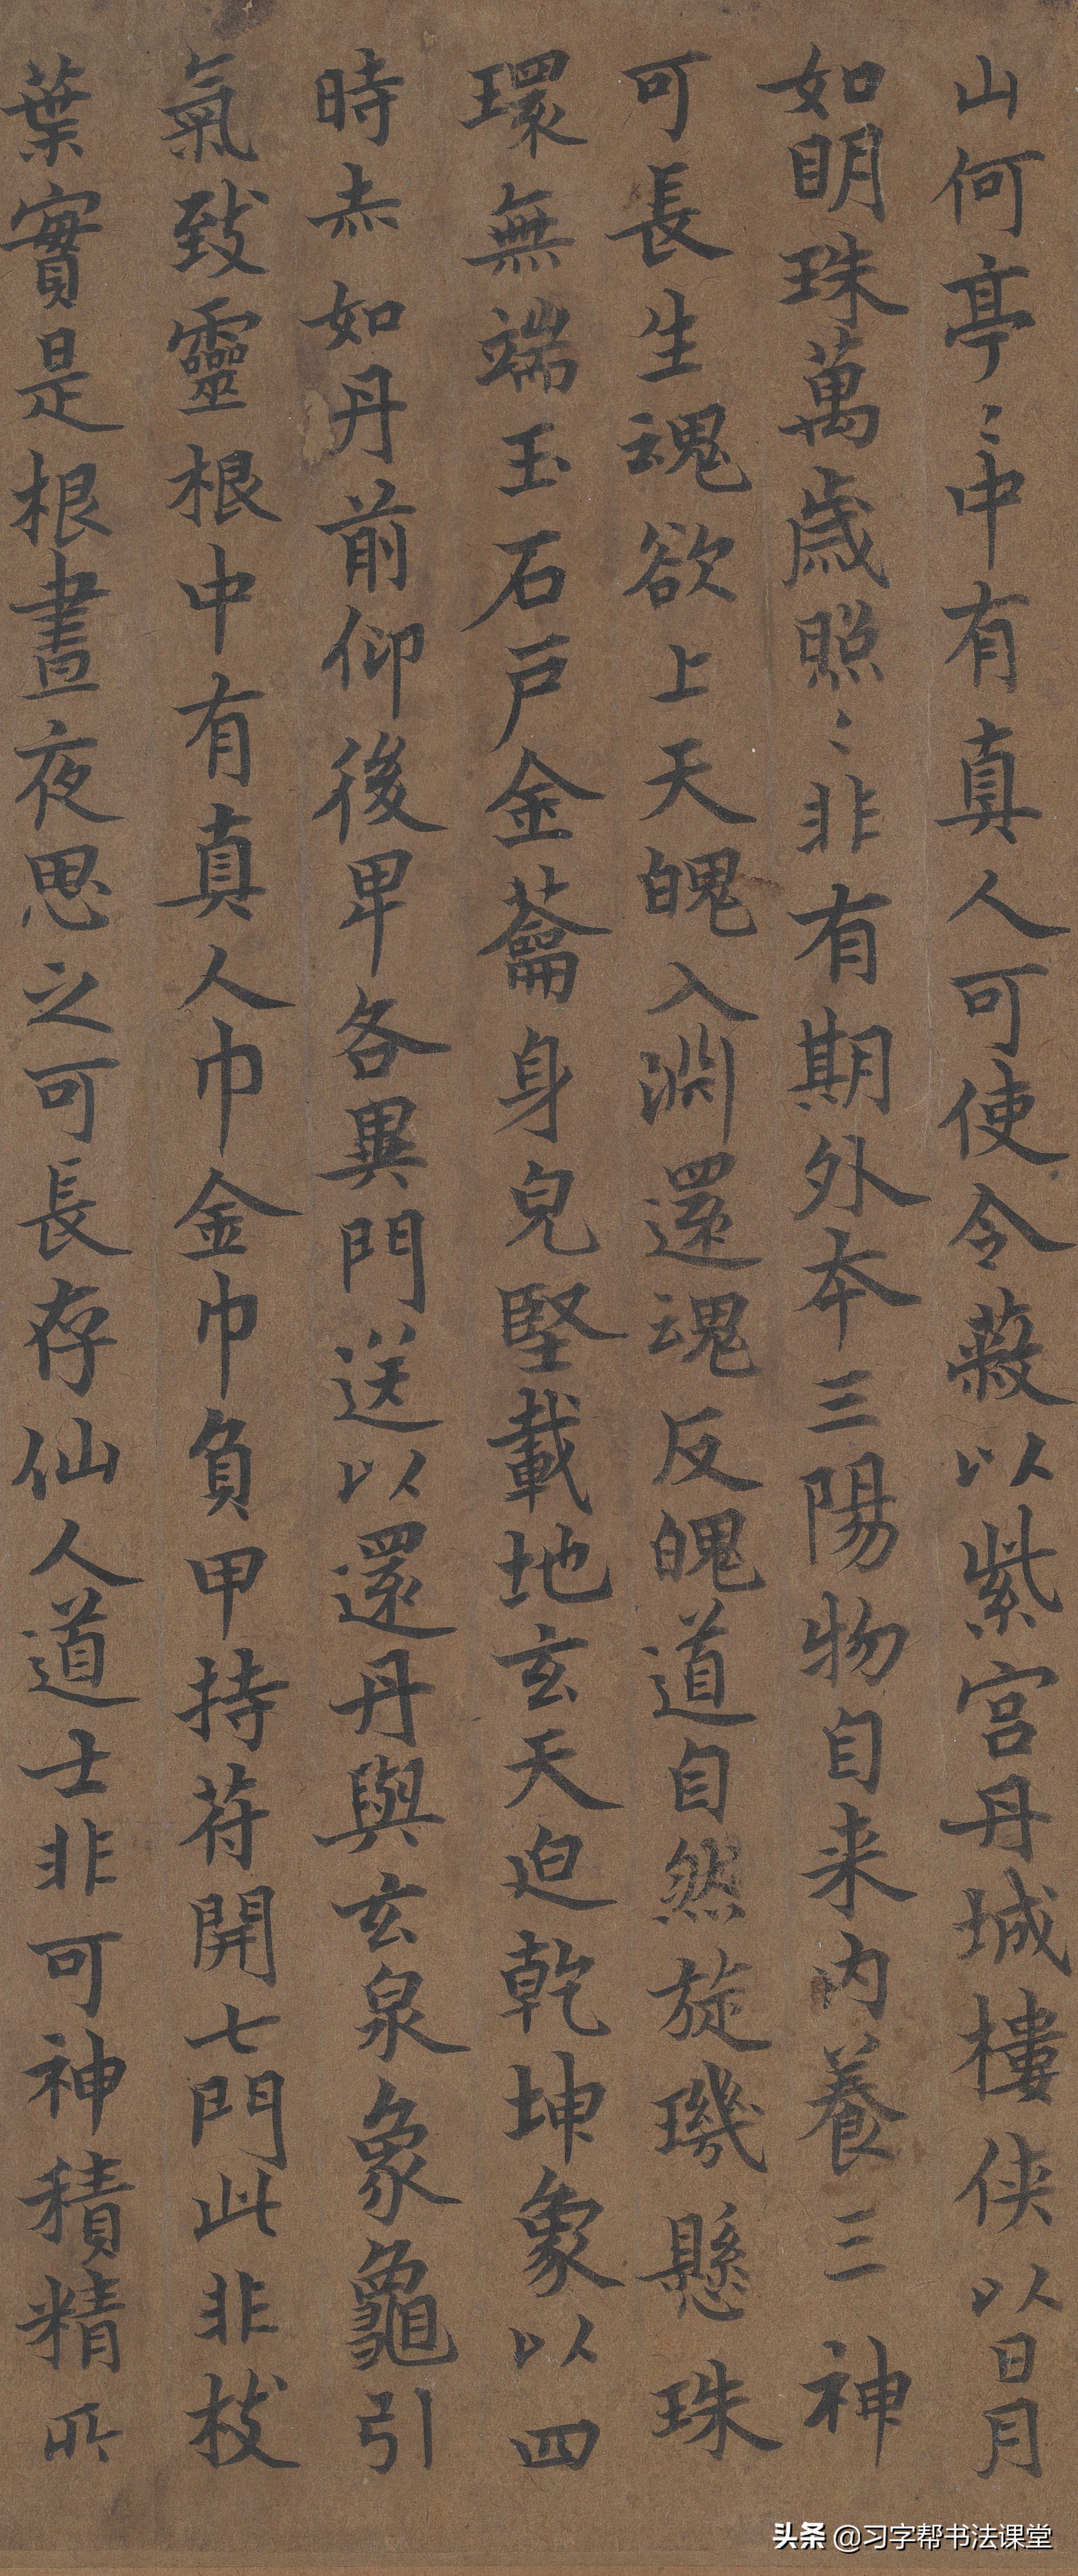 山何亭〻中有真人可使令蔽以紫宫丹城樓侠以日月
如明珠萬歲照〻非有期外本三陽物自来内養三神
可長生魂欲上天魄入淵還魂反魄道自然旋璣懸珠
環無端玉石戶金蘥身皃堅載地玄天迫乾坤象以四
時赤如丹前仰後卑各異門送以還丹與玄泉象龜引
氣致靈根中有真人巾金巾負甲持苻開七門此非枝
葉實是根晝夜思之可長存仙人道士非可神積精所
头条 @习字帮书法课堂